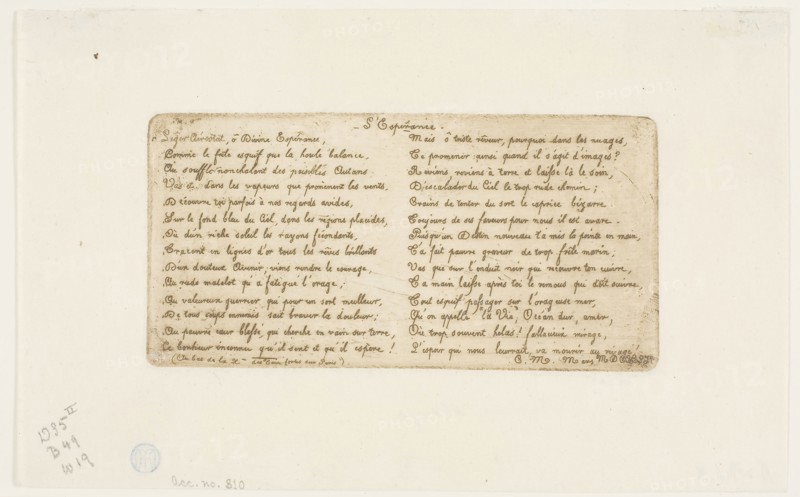 L'Espérance.
Léger Aérostat, ô Divine Espérance,
Comme le frêle esquif que la houle balance,
Au souffle nonchalant des paisibles Autans.
Vas et dans les vapeurs que promènent les vents,
Découvre toi parfois à nos regards avides,
Sur le fond bleu du Ciel, dans les régions placides,
Où d'un riche soleil les rayons fécondants,
Tracent en lignes d'or tous les rêves brillants
D'un douteux Avenir; viens rendre le courage,
Au rude matelot qu'a fatigué l'orage;
Au valeureux guerrier qui pour un sort meilleur,
De tous coups inouïs sait braver la douleur;
Au pauvre cœur blessé, qui cherche en vain sur terre,
Le bonheur inconnu qu'il sent et qu'il espère!
(Au bas de la
Mais ô triste rêveur, pourquoi dans les nuages,
Te promener ainsi quand il s'agit d'images?
Reviens, reviens à terre et laisse là le soin,
D'escalader du Ciel le trop rude chemin;
Crains de tenter du sort le caprice bizarre
Toujours de ses faveurs pour nous il est avare.
Puisqu'un Destin nouveau t'a mis la pointe en main,
T'a fait pauvre graveur de trop frêle marin;
Vas que sur l'enduit noir qui recouvre ton cuivre,
Ta main laisse après toi le remous qui doit suivre,
Tout esquif passager sur l'orageuse mer,
Qu'on appelle la Vie, Océan dur, amer,
Où trop souvent hélas! fallacieux mirage,
L'espoir qui nous leurrait, va mourir au rivage!
C. M.
D35 II
B 49
W19
Acc. no. 810